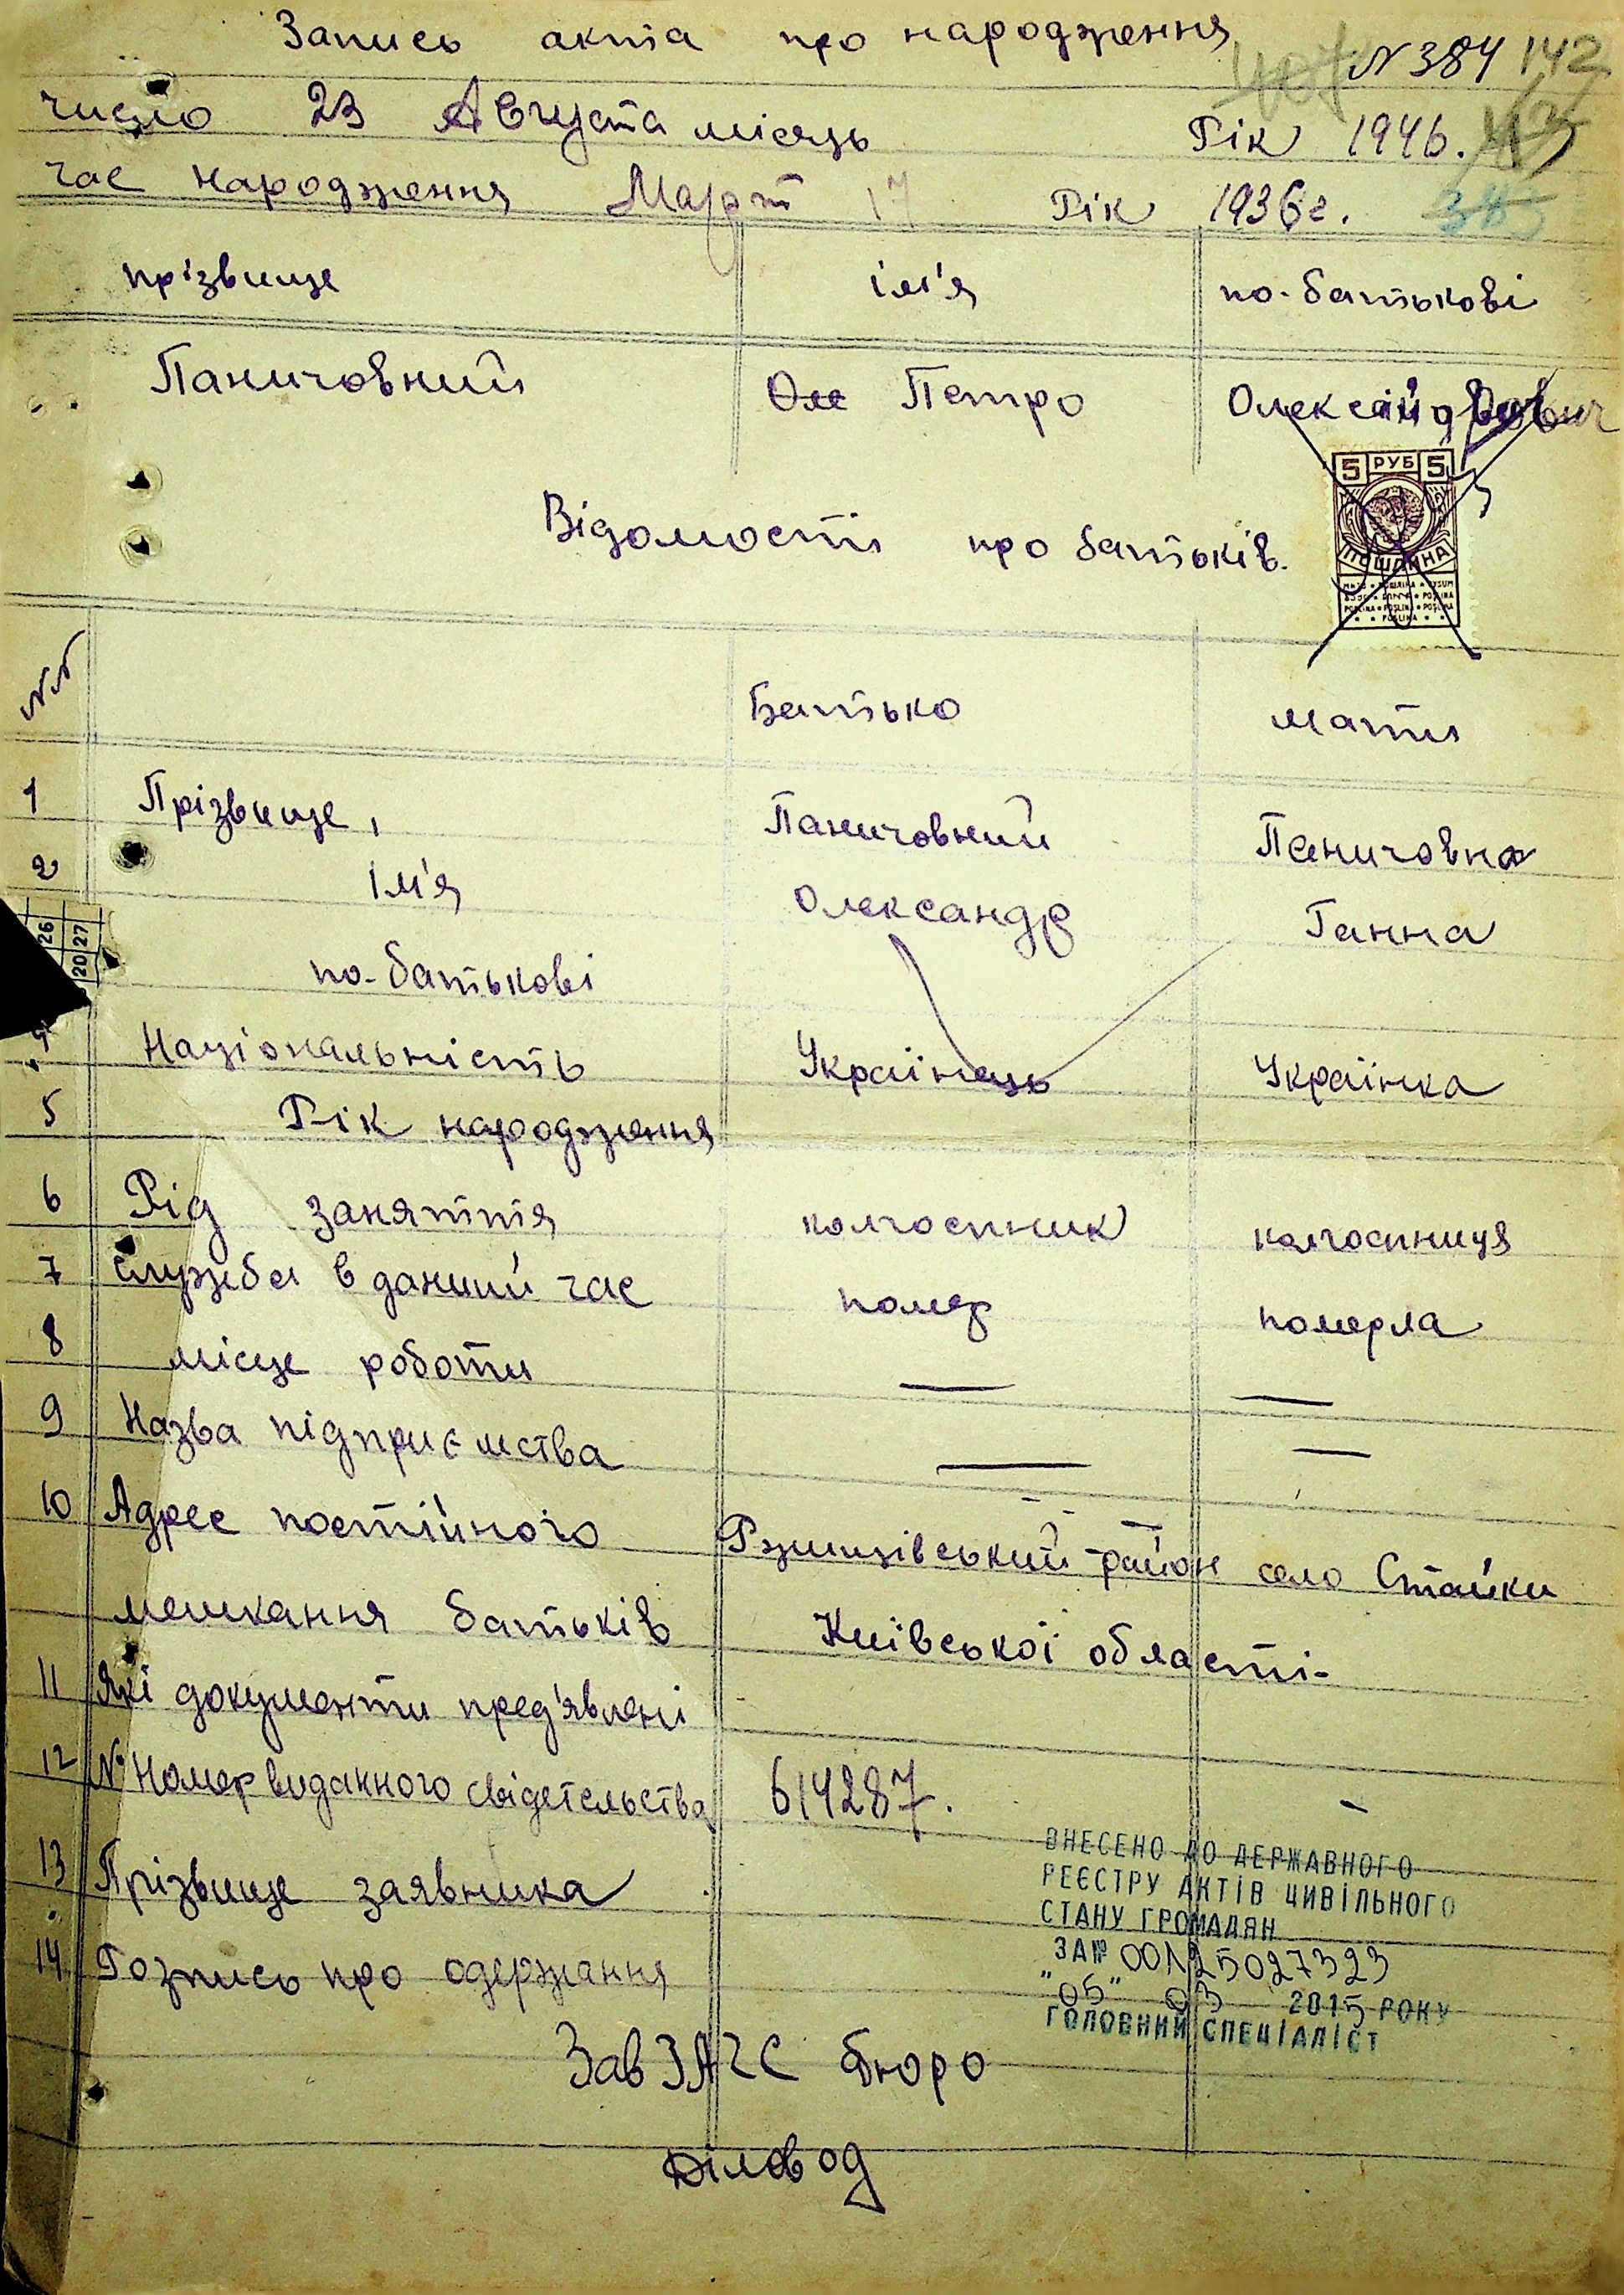 Запись акта про народження
N 384 142
число 23 Августа місяць Рік 1946.
час народження Март 17 Рік 1936 г.
прізвище ім'я по-батькові
Паничовний Оле Петро
5 РУБ 5
ПОШЛИНА
Відомости про батьків.
№№
Батько мати
1 Прізвище, Паничовний Паничовна
2 Ім'я Олександр Ганна
по-батькові
26
20 27
4 Національність Українець Українка
5 Рік народження
6 Рід заняття колгоспник колгоспниця
7 Служба в даний час помер померла
8 місце роботи — —
9 Назва підприємства — —
10 Адрес постійного Ржищівський район село Стайки
мешкання батьків Київської області-
11 Які документи пред'явлені
12 № Номер виданного свідетельства 614287. -
13 Прізвище заявника
14 Розпись про одержання
ВНЕСЕНО ДО ДЕРЖАВНОГО
РЕЄСТРУ АКТІВ ЦИВІЛЬНОГО
СТАНУ ГРОМАДЯН
ЗА № 00125027323
"05" 03 2015 РОКУ
ГОЛОВНИЙ СПЕЦІАЛІСТ
Зав ЗАГС бюро
Діловод